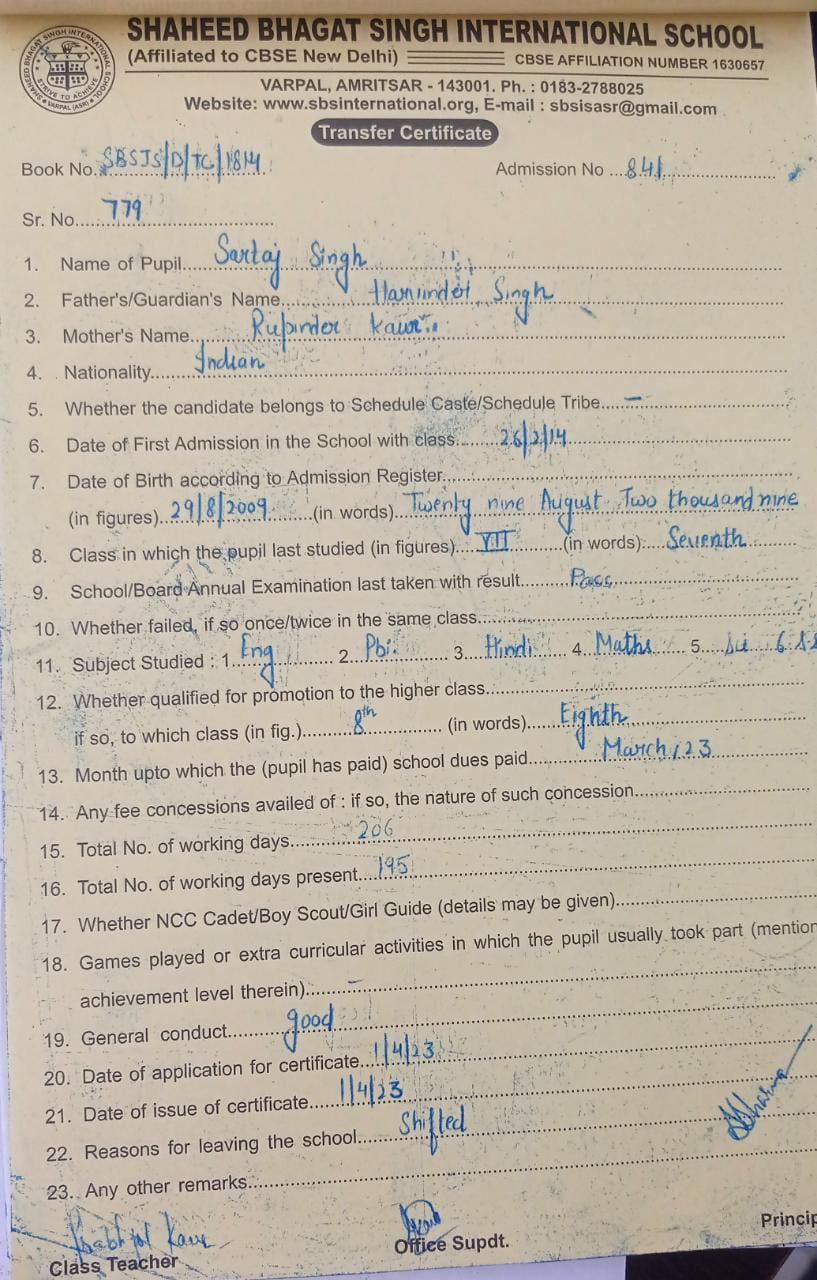 SHAHEED BHAGAT SINGH INTERNATIONAL SCHOOL
(Affiliated to CBSE New Delhi) CBSE AFFILIATION NUMBER 1630657
VARPAL, AMRITSAR - 143001. Ph. : 0183-2788025
Website: www.sbsinternational.org, E-mail : sbsisasr@gmail.com
Transfer Certificate
Book No. SBSIS/D/TC/1814 Admission No ... 841
Sr. No. 779
1. Name of Pupil Sartaj Singh
2. Father's/Guardian's Name Harwinder Singh
3. Mother's Name Rupinder Kaur
4. Nationality Indian
5. Whether the candidate belongs to Schedule Caste/Schedule Tribe –
6. Date of First Admission in the School with class 26/2/14
7. Date of Birth according to Admission Register
(in figures) 29/8/2009 (in words) Twenty nine August Two thousand nine
8. Class in which the pupil last studied (in figures) VII (in words) Seventh
9. School/Board Annual Examination last taken with result Pass
10. Whether failed, if so once/twice in the same class
11. Subject Studied : 1. Eng 2. Pbi. 3. Hindi 4. Maths 5. Sci 6. SS
12. Whether qualified for promotion to the higher class
if so, to which class (in fig.) 8th (in words) Eighth
13. Month upto which the (pupil has paid) school dues paid March, 23
14. Any fee concessions availed of : if so, the nature of such concession
15. Total No. of working days 206
16. Total No. of working days present 195
17. Whether NCC Cadet/Boy Scout/Girl Guide (details may be given)
18. Games played or extra curricular activities in which the pupil usually took part (mention
achievement level therein) –
19. General conduct good
20. Date of application for certificate 1/4/23
21. Date of issue of certificate 1/4/23
22. Reasons for leaving the school Shifted
23. Any other remarks
Class Teacher Office Supdt. Princip